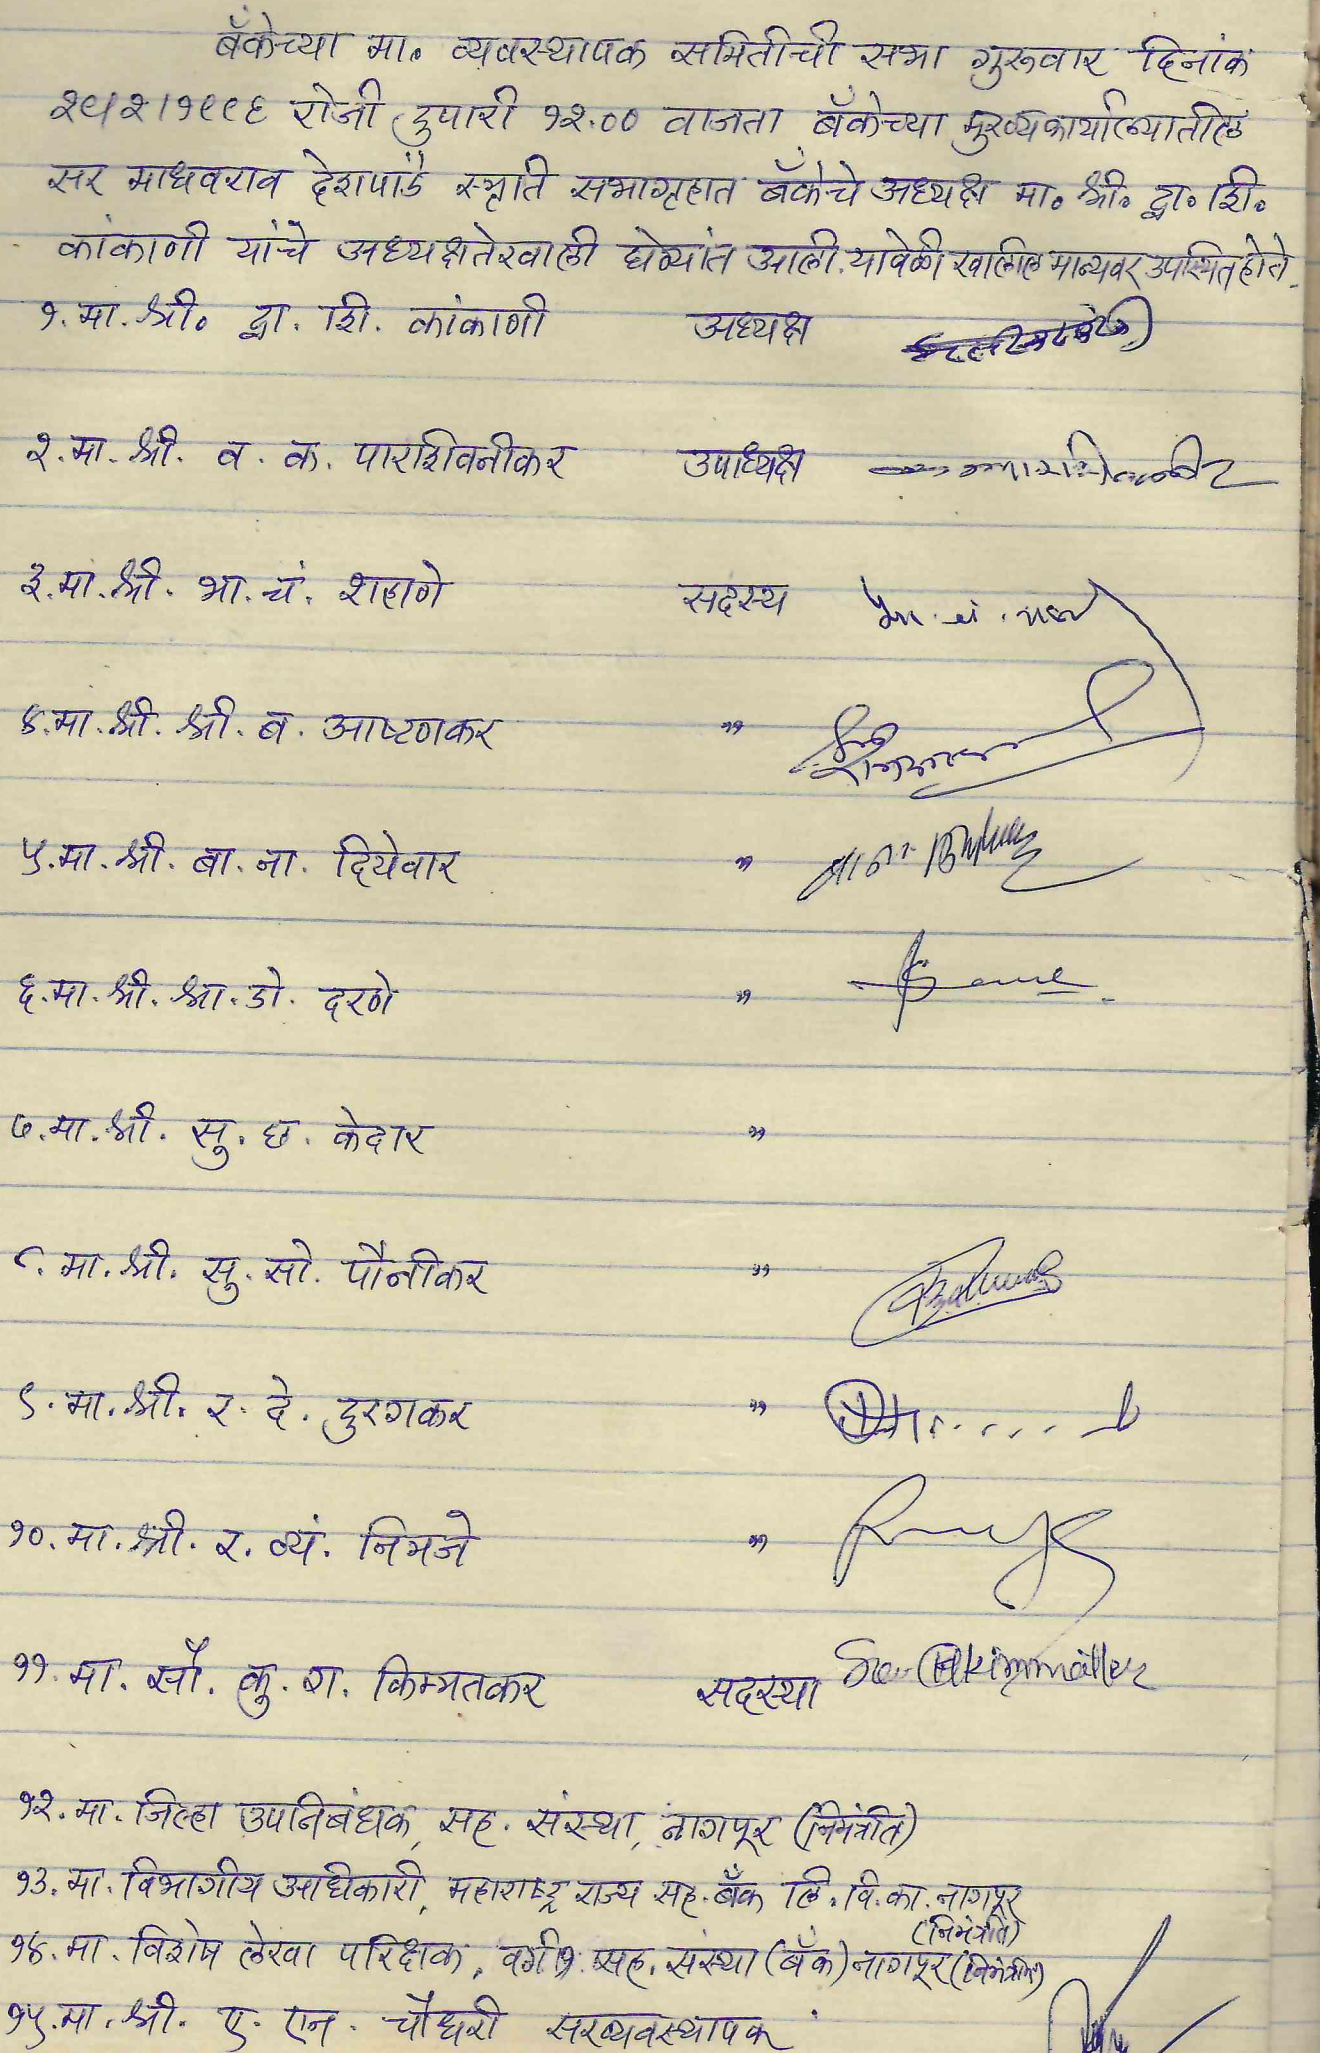 बँकेच्या मा. व्यवस्थापक समितीची सभा गुरूवार दिनांक
रोजी दुपारी १२.०० वाजता बँकेच्या मुख्यकार्यालयातील
सर माधवराव देशपांडे स्मृति सभागृहात बँकेचे अध्यक्ष मा. श्री. द्वा. शि.
कांकाणी यांचे अध्यक्षतेखाली घेण्यांत आली. यावेळी खालील मान्यवर उपस्थित होते.
१. मा. श्री. द्वा. शि. कांकाणी अध्यक्ष
२. मा. श्री. व. क. पारशिवनीकर उपाध्यक्ष
३. मा. श्री. भा. चं. शहाणे सदस्य
४. मा. श्री. श्री. ब. आष्टणकर "
५. मा. श्री. बा. ना. दियेवार "
६. मा. श्री. श्रा. डो. दरणे "
७. मा. श्री. सु. छ. केदार "
८. मा. श्री. सु. सो. पौनीकर "
९. मा. श्री. र. दे. दुरगकर "
१०. मा. श्री. र. व्यं. निमजे "
११. मा. सौ. कु. श. किम्मतकर सदस्या
१२. मा. जिल्हा उपनिबंधक, सह. संस्था, नागपूर (निमंत्रीत)
१३. मा. विभागीय अधिकारी, महाराष्ट्र राज्य सह. बँक लि. वि. का. नागपूर
(निमंत्रीत)
१४. मा. विशेष लेखा परिक्षक, वर्ग १. सह. संस्था (बँक) नागपूर (निमंत्रीत)
१५. मा. श्री. ए. एन. चौधरी सरव्यवस्थापक